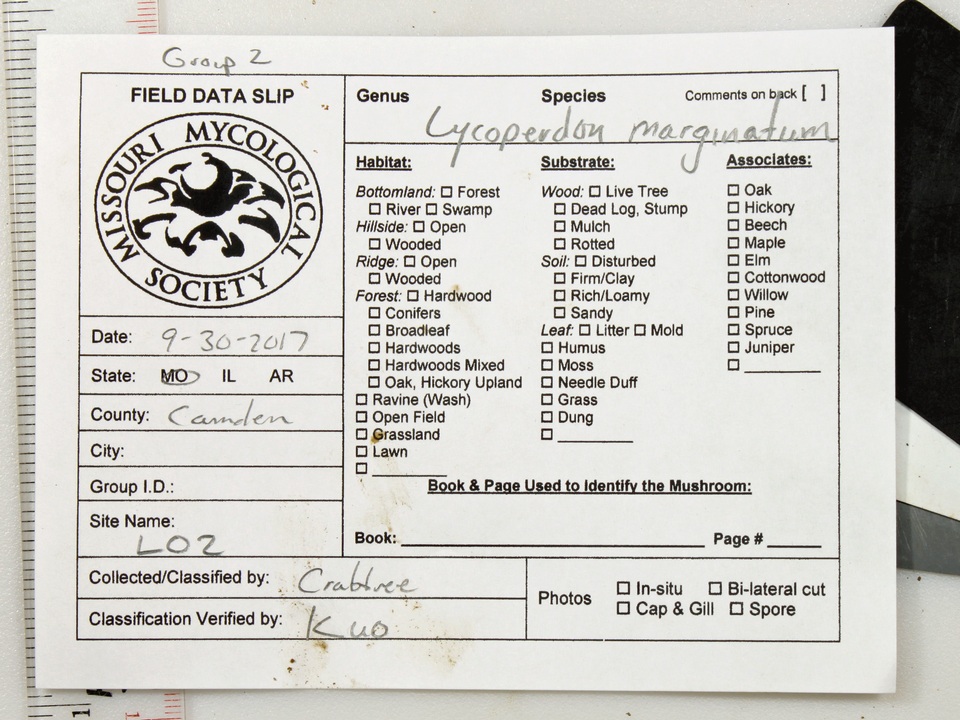 Group 2
FIELD DATA SLIP
MISSOURI MYCOLOGICAL SOCIETY
Date: 9-30-2017
State: MO IL AR
County: Camden
City:
Group I.D.:
Site Name:
LOZ
Genus Species Comments on back [ ]
Lycoperdon marginatum
Habitat:
Bottomland: ☐ Forest
☐ River ☐ Swamp
Hillside: ☐ Open
☐ Wooded
Ridge: ☐ Open
☐ Wooded
Forest: ☐ Hardwood
☐ Conifers
☐ Broadleaf
☐ Hardwoods
☐ Hardwoods Mixed
☐ Oak, Hickory Upland
☐ Ravine (Wash)
☐ Open Field
☐ Grassland
☐ Lawn
☐ ________
Substrate:
Wood: ☐ Live Tree
☐ Dead Log, Stump
☐ Mulch
☐ Rotted
Soil: ☐ Disturbed
☐ Firm/Clay
☐ Rich/Loamy
☐ Sandy
Leaf: ☐ Litter ☐ Mold
☐ Humus
☐ Moss
☐ Needle Duff
☐ Grass
☐ Dung
☐ ________
Associates:
☐ Oak
☐ Hickory
☐ Beech
☐ Maple
☐ Elm
☐ Cottonwood
☐ Willow
☐ Pine
☐ Spruce
☐ Juniper
☐ ________
Book & Page Used to Identify the Mushroom:
Book: ________ Page # ________
Collected/Classified by: Crabtree
Classification Verified by: Kuo
Photos
☐ In-situ ☐ Bi-lateral cut
☐ Cap & Gill ☐ Spore